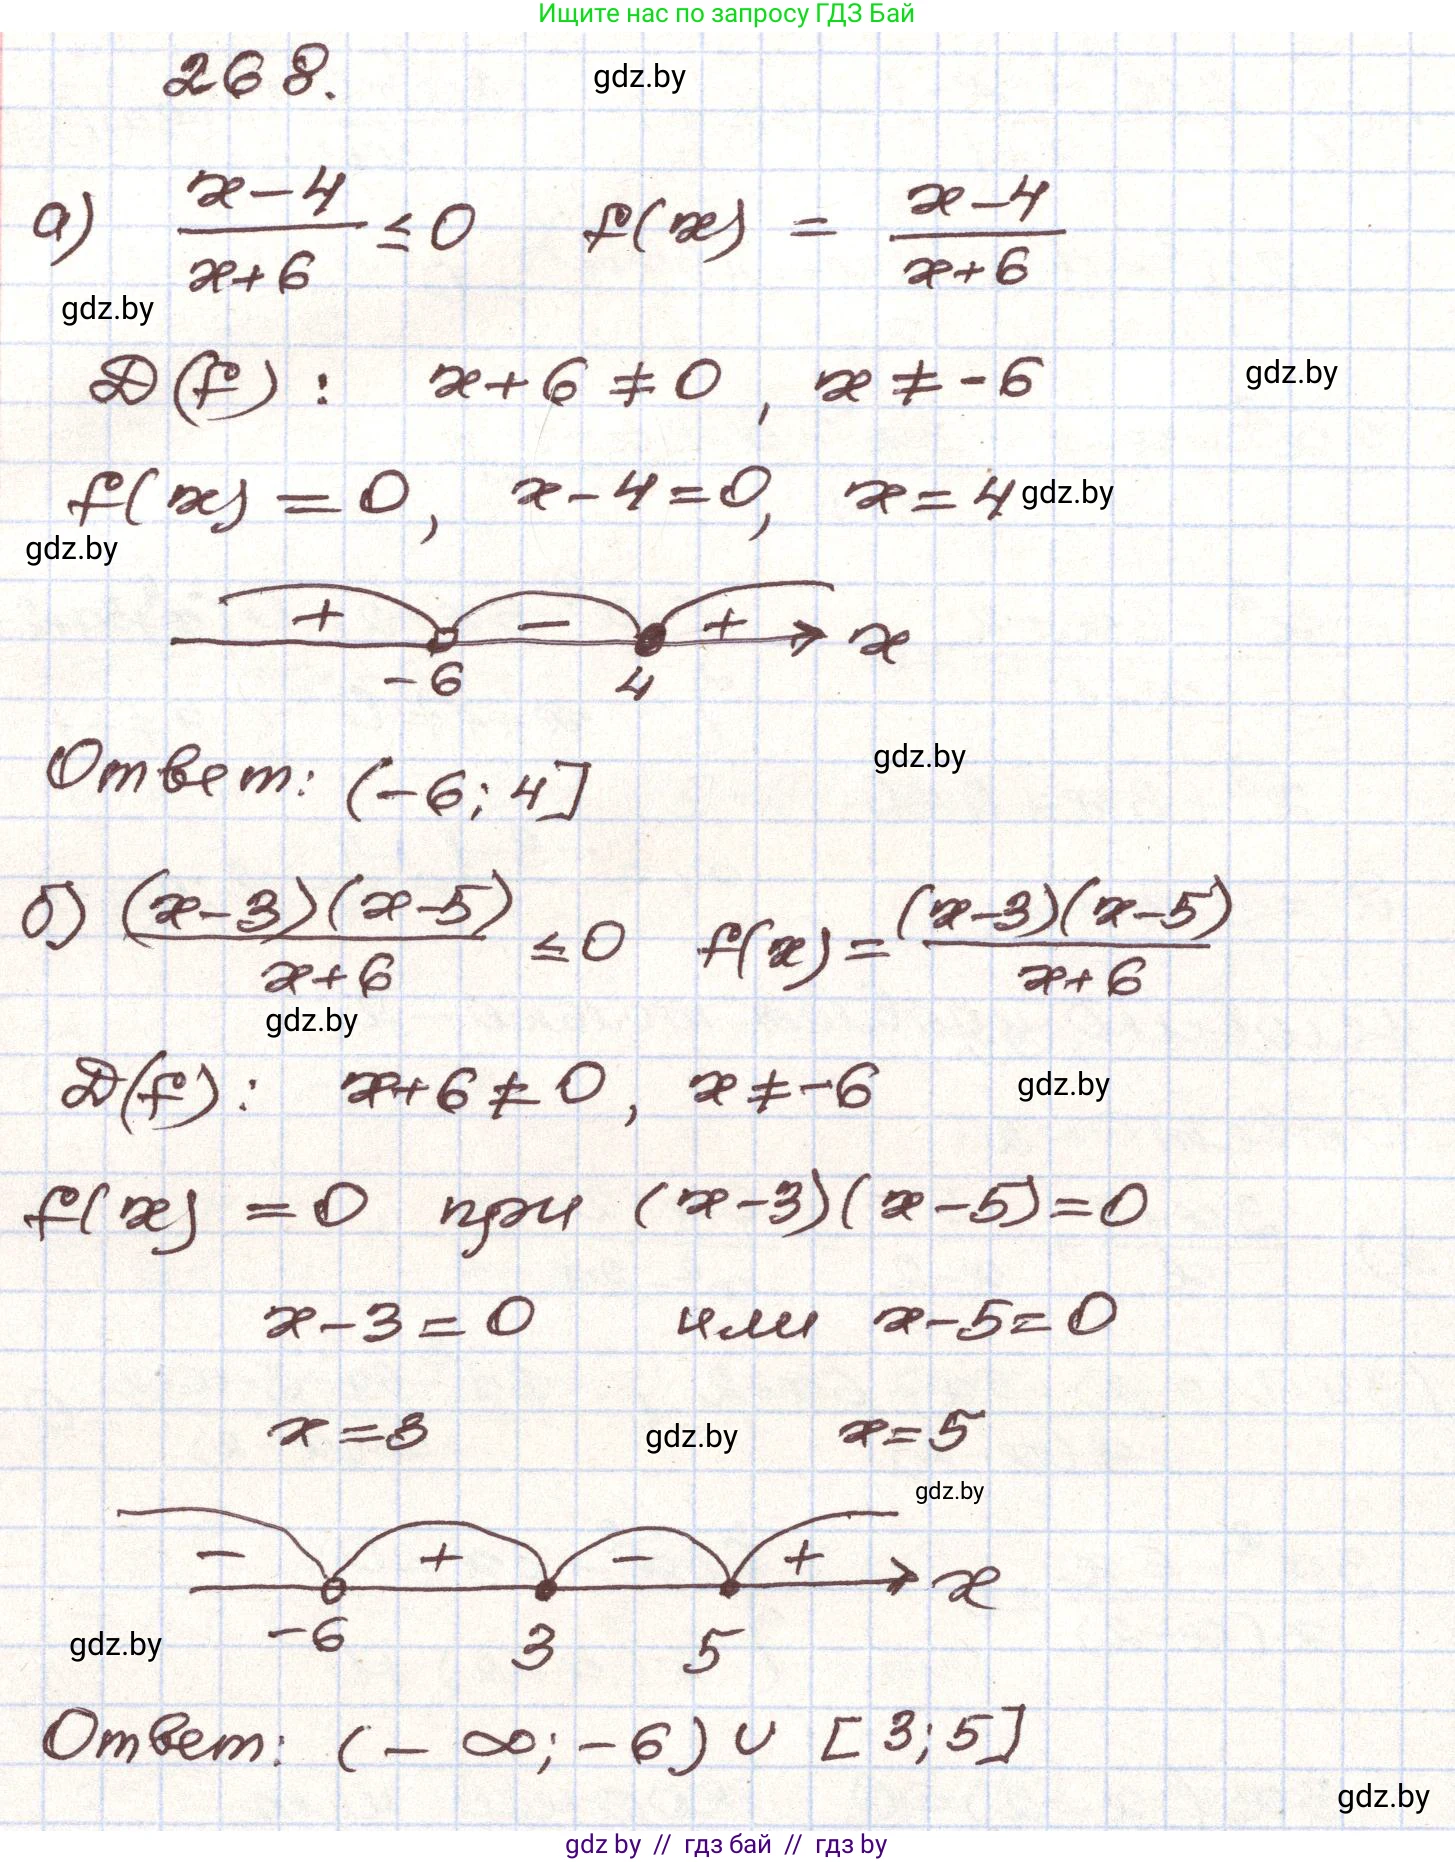 Ищите нас по запросу ГДЗ Бай
268. gdz.by
а) (x-4)/(x+6) ≤ 0 f(x) = (x-4)/(x+6)
gdz.by
D(f): x+6≠0, x≠-6 gdz.by
f(x)=0, x-4=0, x=4 gdz.by
gdz.by
+ - + x
-6 4
Ответ: (-6; 4] gdz.by
б) (x-3)(x-5)/(x+6) ≤ 0 f(x) = (x-3)(x-5)/(x+6)
gdz.by
D(f): x+6≠0, x≠-6 gdz.by
f(x)=0 при (x-3)(x-5)=0
x-3=0 или x-5=0
x=3 gdz.by x=5
gdz.by
- + - + x
gdz.by -6 3 5
Ответ: (-∞; -6) ∪ [3; 5]
gdz.by
gdz by // гдз бай // гдз by